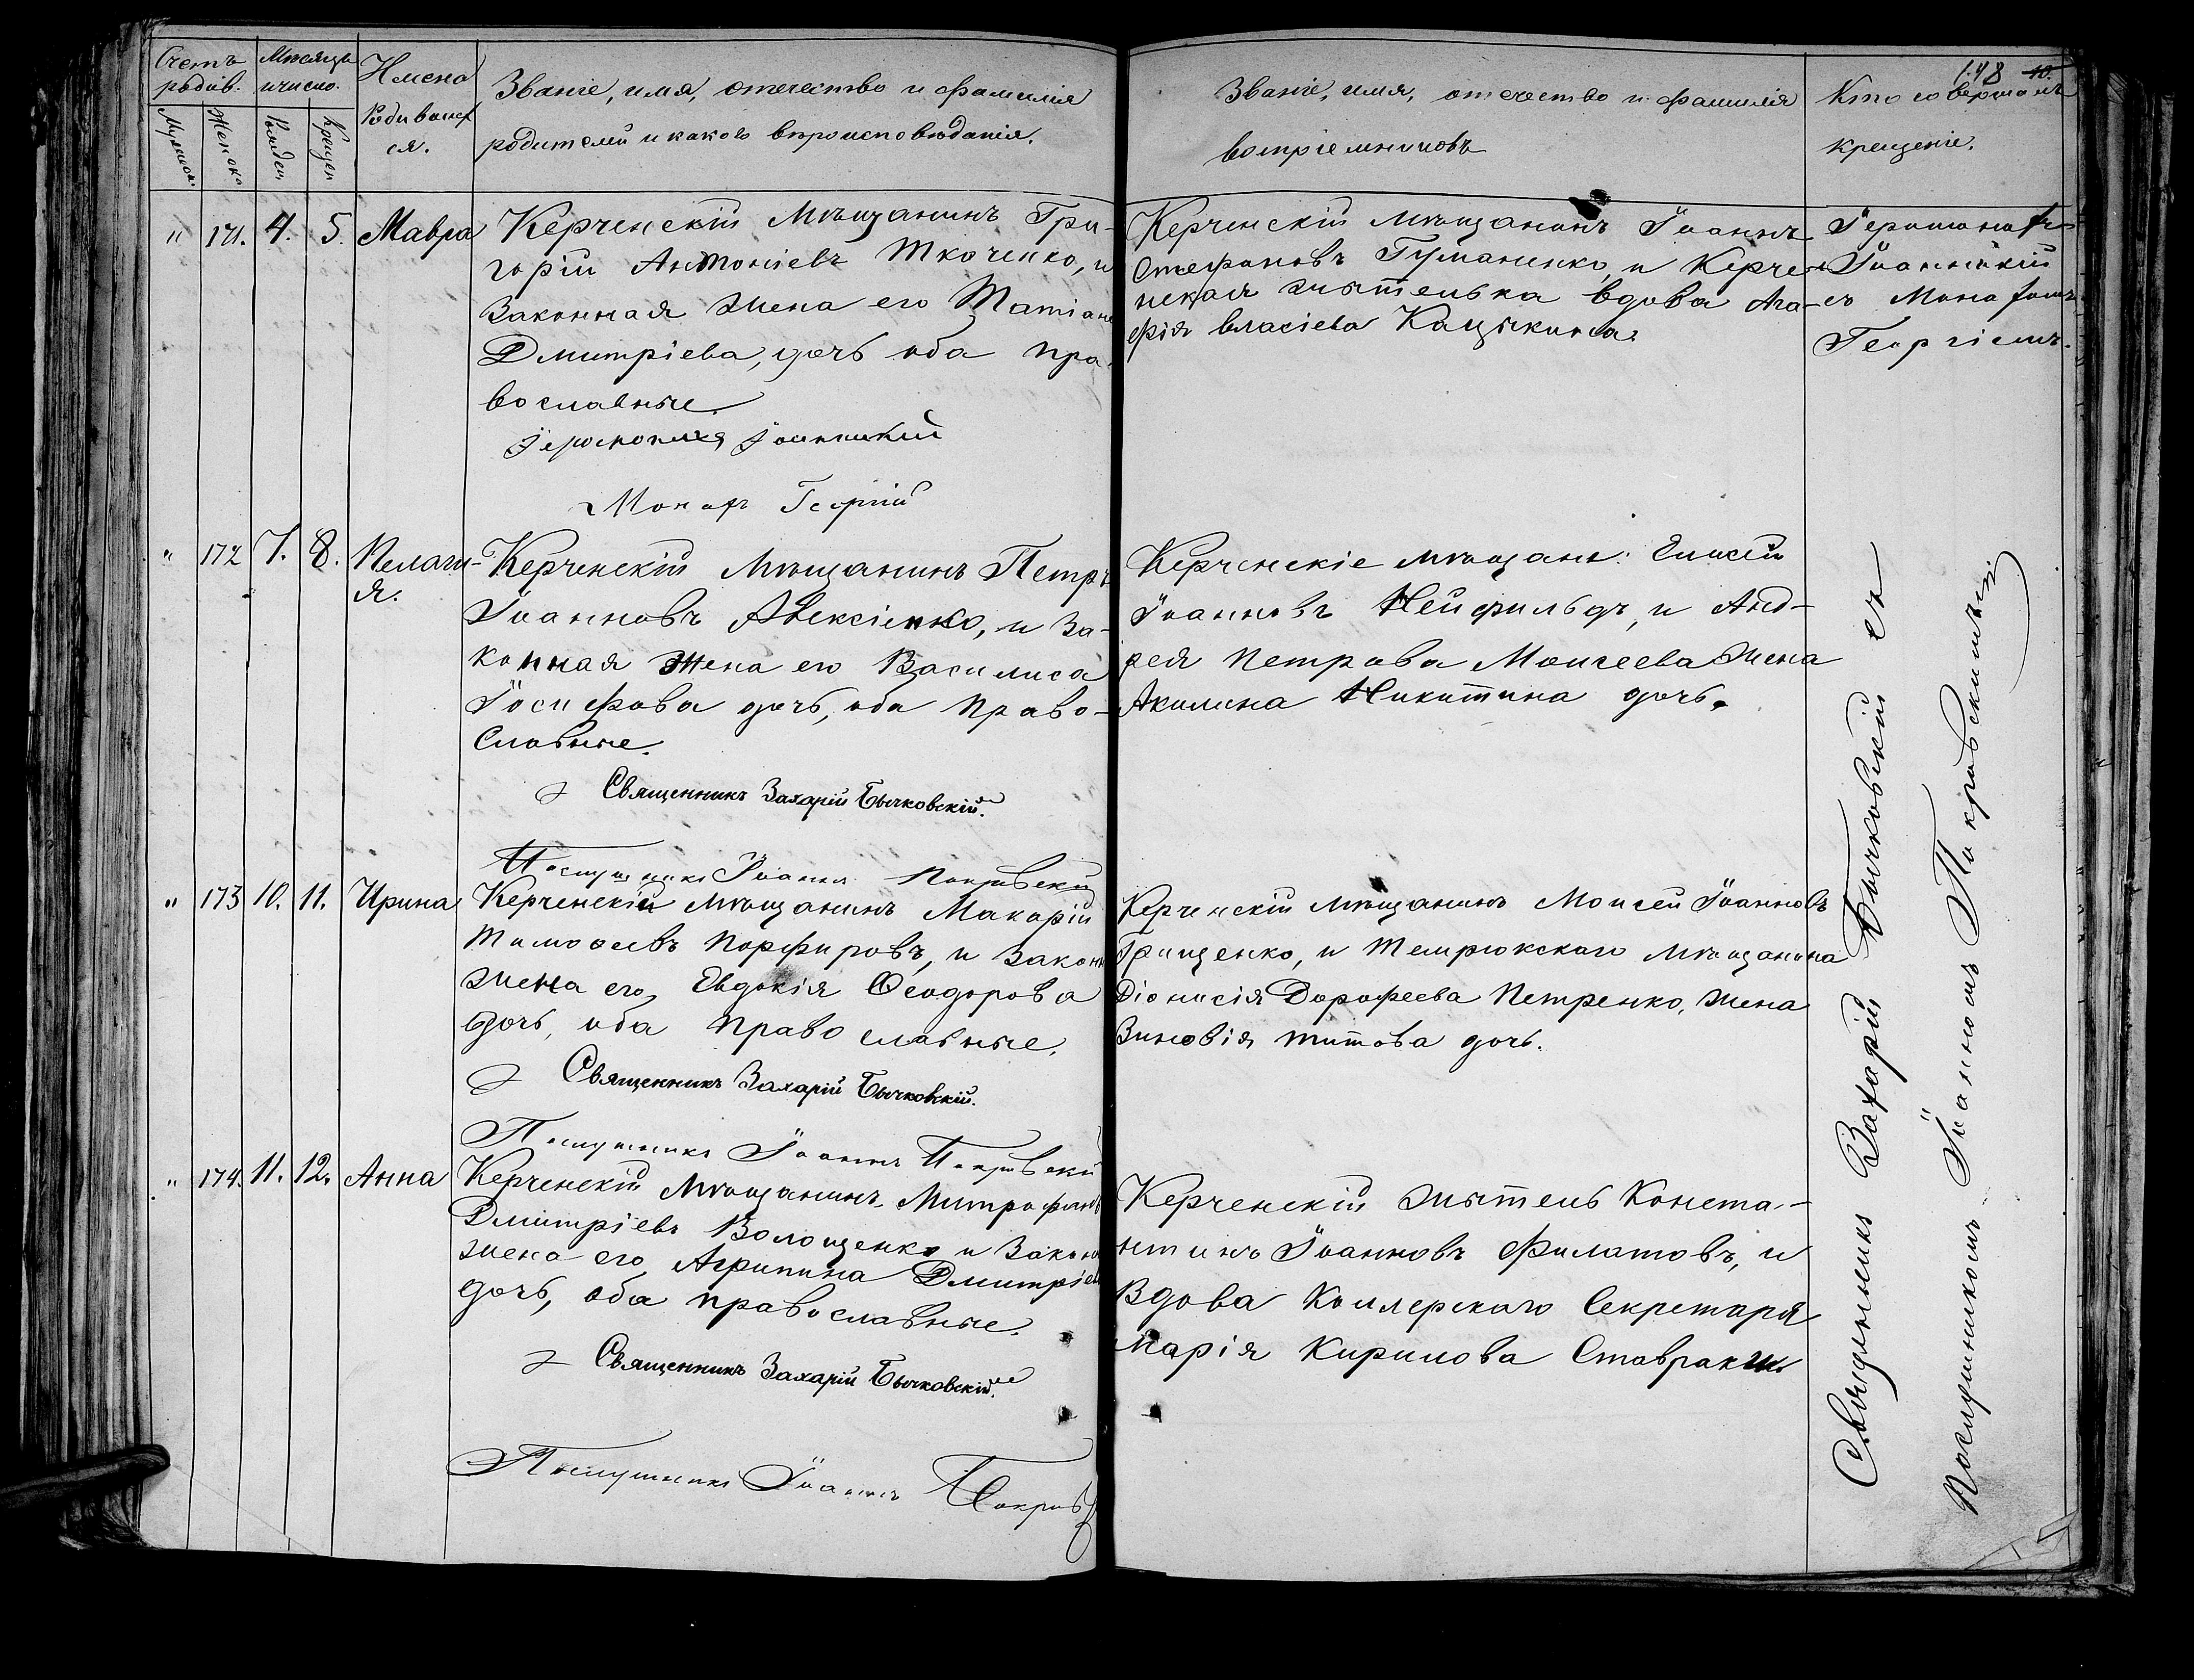 Счетъ родив.
Мужеск.
Женска
Мѣсяцъ и число.
Рожден
Крещен
Имена
Родившей
ся.
Званіе, имя, отечество и фамилія
родителей и какого вѣроисповѣданія.
Званіе, имя, отечество и фамилія
воспріемниковъ
148 10.
Кто совершалъ
крещеніе.
" 171. 4. 5. Мавра
Керченскій Мѣщанинъ Гри-
горій Антоніевъ Ткаченко, и
Законная Жена его Татіана
Дмитріева, дочь оба пра-
вославные.
Іеромонахъ Іоанникій
Монахъ Георгій
Керченскій Мѣщанинъ Іоаннъ
Стефановъ Гуманенко, и Керче-
нская жителька вдова Ага-
фія Власіева
Іеромонахъ
Іоанникій
съ Монахомъ
Георгіемъ.
" 172 7. 8. Пелаги-
я.
Керченскій Мѣщанинъ Петръ
Іоанновъ Алексіенко, и За-
конная Жена его Василиса
Іосифова дочь, оба Право-
славные.
Священникъ Захарій Бычковскій.
Послушникъ Іоаннъ Покровскій
Керченскіе мѣщане: Елисей
Іоанновъ Нейфильдъ, и Анд-
рея Петрова Моисеева Жена
Акилина Никитина дочь.
" 173 10. 11. Ирина
Керченскій Мѣщанинъ Макарій
Тимофеевъ Порфировъ, и Законн
жена его, Евдокія Ѳеодорова
дочь, оба православные.
Священникъ Захарій Бычковскій.
Послушникъ Іоаннъ Покровскій
Керченскій Мѣщанинъ Моисей Іоанновъ
Грищенко, и Темрюкскаго Мѣщанина
Діонисія Дорофеева Петренко, жена
Зиновія Титова дочь.
" 174. 11. 12. Анна
Керченскій Мѣщанинъ Митрофанъ
Дмитріевъ Волощенко и Законн
жена его, Агрипина Дмитріев
дочь, оба православные.
Священникъ Захарій Бычковскій.
Послушникъ Іоаннъ Покров
Керченскій житель Конста-
нтинъ Іоанновъ Филатовъ, и
Вдова Коллерскаго Секретаря
Марія Кирилова Ставраки.
Священникъ Захарій Бычковскій съ
Послушникомъ Іоанномъ Покровскимъ.